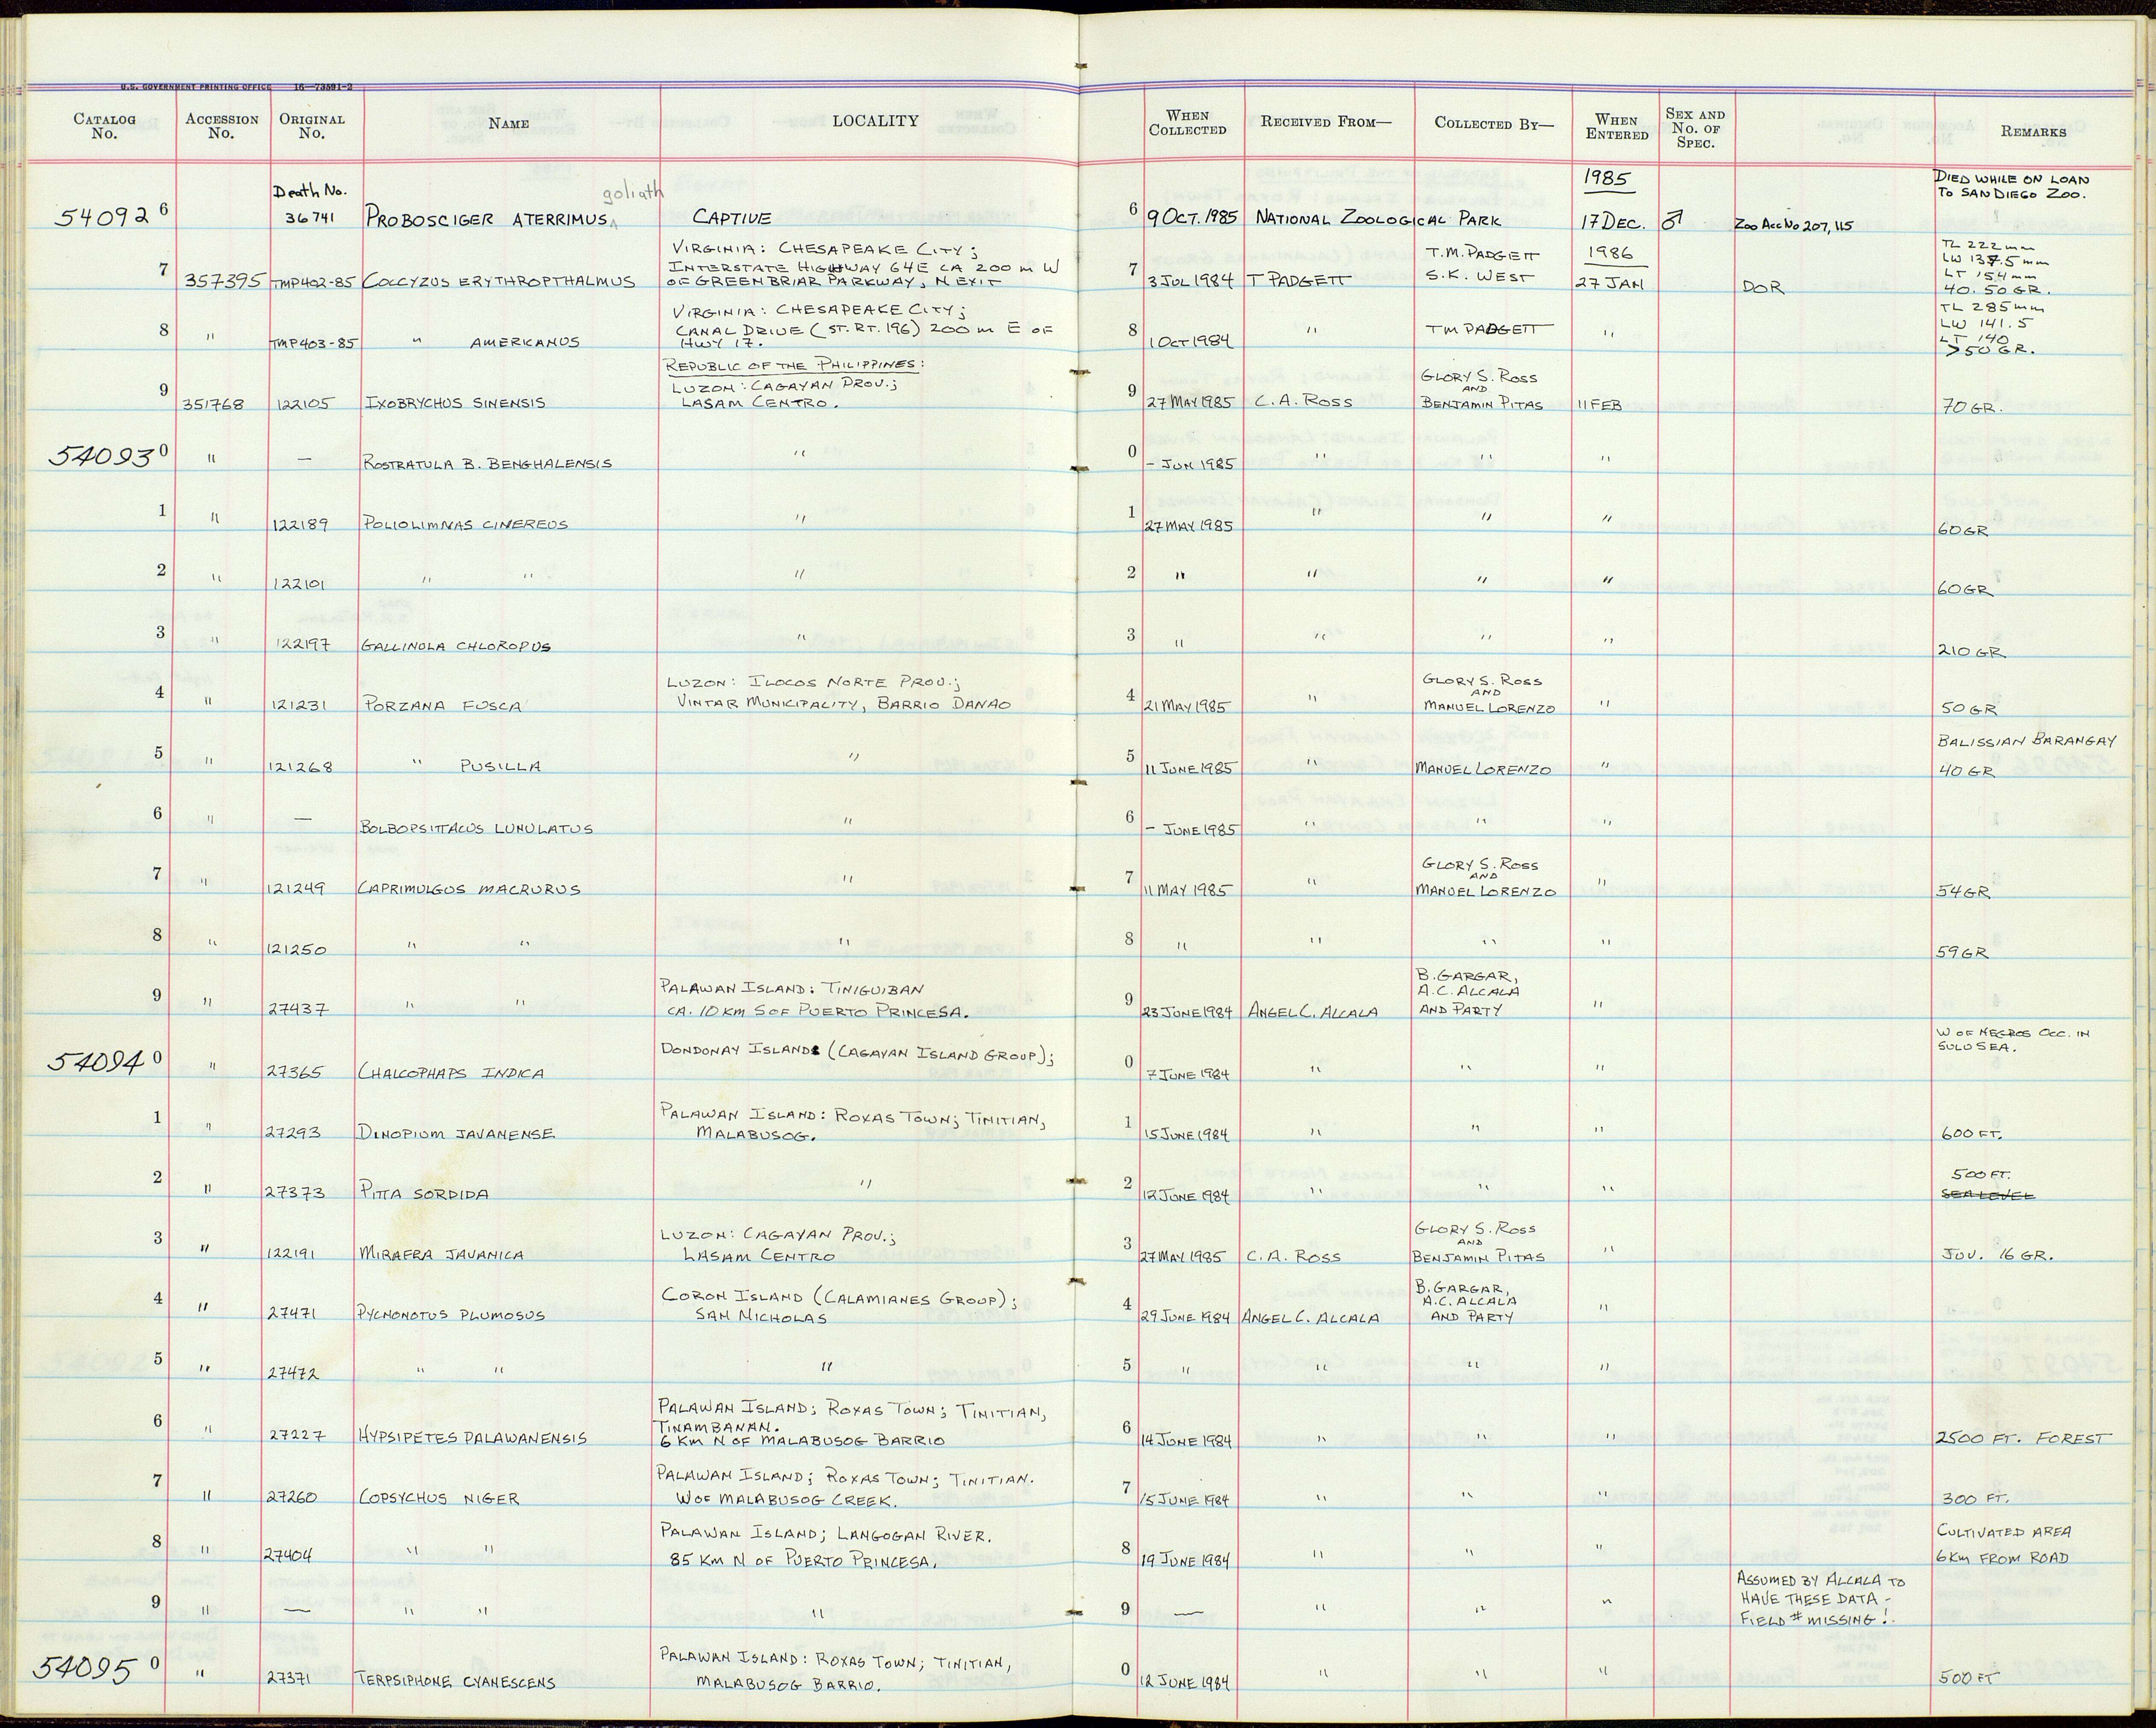 U.S. GOVERNMENT PRINTING OFFICE 16—73591-2
CATALOG No. ACCESSION No. ORIGINAL No. NAME LOCALITY WHEN COLLECTED RECEIVED FROM— COLLECTED BY— WHEN ENTERED SEX AND No. OF SPEC. REMARKS
Death No. goliath 1985 DIED WHILE ON LOAN
TO SAN DIEGO ZOO.
54092 6 36741 PROBOSCIGER ATERRIMUS ^ CAPTIVE 6 9 OCT. 1985 NATIONAL ZOOLOGICAL PARK 17 DEC. ♂ Zoo Acc No 207,115
VIRGINIA: CHESAPEAKE CITY; T.M. PADGETT 1986 TL 222 mm
INTERSTATE HIGHWAY 64E CA 200 m W S.K. WEST LW 137.5 mm
LT 154 mm
7 357395 TMP402-85 COCCYZUS ERYTHROPTHALMUS OF GREENBRIAR PARKWAY, N EXIT 7 3 JUL 1984 T PADGETT 27 JAN DOR 40.50 GR.
VIRGINIA: CHESAPEAKE CITY; TL 285 mm
CANAL DRIVE (ST. RT. 196) 200 m E OF LW 141.5
LT 140
8 " TMP403-85 " AMERICANUS HWY 17. 8 1 OCT 1984 " TM PADGETT " >50 GR.
REPUBLIC OF THE PHILIPPINES:
LUZON: CAGAYAN PROV.; GLORY S. ROSS
AND
9 351768 122105 IXOBRYCHUS SINENSIS LASAM CENTRO. 9 27 MAY 1985 C.A. ROSS BENJAMIN PITAS 11 FEB 70 GR.
54093 0 " — ROSTRATULA B. BENGHALENSIS " 0 - JUN 1985 " " "
1 " 122189 POLIOLIMNAS CINEREUS " 1 27 MAY 1985 " " " 60 GR
2 " 122101 " " " 2 " " " " 60 GR
3 " 122197 GALLINULA CHLOROPUS " 3 " " " " 210 GR
LUZON: ILOCOS NORTE PROV.; GLORY S. ROSS
AND
4 " 121231 PORZANA FUSCA VINTAR MUNICIPALITY, BARRIO DANAO 4 21 MAY 1985 " MANUEL LORENZO " 50 GR
BALISSIAN BARANGAY
5 " 121268 " PUSILLA " 5 11 JUNE 1985 " MANUEL LORENZO " 40 GR
6 " — BOLBOPSITTACUS LUNULATUS " 6 - JUNE 1985 " " "
GLORY S. ROSS
AND
7 " 121249 CAPRIMULGUS MACRURUS " 7 11 MAY 1985 " MANUEL LORENZO " 54 GR
8 " 121250 " " " 8 " " " " 59 GR
PALAWAN ISLAND: TINIGUIBAN B. GARGAR,
A.C. ALCALA
9 " 27437 " " CA. 10 KM S OF PUERTO PRINCESA. 9 23 JUNE 1984 ANGEL C. ALCALA AND PARTY "
DONDONAY ISLAND (CAGAYAN ISLAND GROUP); W OF NEGROS OCC. IN
SULU SEA.
54094 0 " 27365 CHALCOPHAPS INDICA 0 7 JUNE 1984 " " "
PALAWAN ISLAND: ROXAS TOWN; TINITIAN,
1 " 27293 DINOPIUM JAVANENSE MALABUSOG. 1 15 JUNE 1984 " " " 600 FT.
500 FT.
2 " 27373 PITTA SORDIDA " 2 12 JUNE 1984 " " " SEA LEVEL
LUZON: CAGAYAN PROV.; GLORY S. ROSS
AND
3 " 122191 MIRAFRA JAVANICA LASAM CENTRO 3 27 MAY 1985 C.A. ROSS BENJAMIN PITAS " JUV. 16 GR.
CORON ISLAND (CALAMIANES GROUP); B. GARGAR,
A.C. ALCALA
4 " 27471 PYCNONOTUS PLUMOSUS SAN NICHOLAS 4 29 JUNE 1984 ANGEL C. ALCALA AND PARTY "
5 " 27472 " " " 5 " " " "
PALAWAN ISLAND; ROXAS TOWN; TINITIAN,
TINAMBANAN.
6 " 27227 HYPSIPETES PALAWANENSIS 6 KM N OF MALABUSOG BARRIO 6 14 JUNE 1984 " " " 2500 FT. FOREST
PALAWAN ISLAND; ROXAS TOWN; TINITIAN.
7 " 27260 COPSYCHUS NIGER W OF MALABUSOG CREEK. 7 15 JUNE 1984 " " " 300 FT.
PALAWAN ISLAND; LANGOGAN RIVER. CULTIVATED AREA
8 " 27404 " " 85 KM N OF PUERTO PRINCESA. 8 19 JUNE 1984 " " " 6 KM FROM ROAD
ASSUMED BY ALCALA TO
HAVE THESE DATA -
9 " — " " " 9 — " " " FIELD # MISSING!
PALAWAN ISLAND: ROXAS TOWN; TINITIAN,
54095 0 " 27371 TERPSIPHONE CYANESCENS MALABUSOG BARRIO. 0 12 JUNE 1984 " " " 500 FT